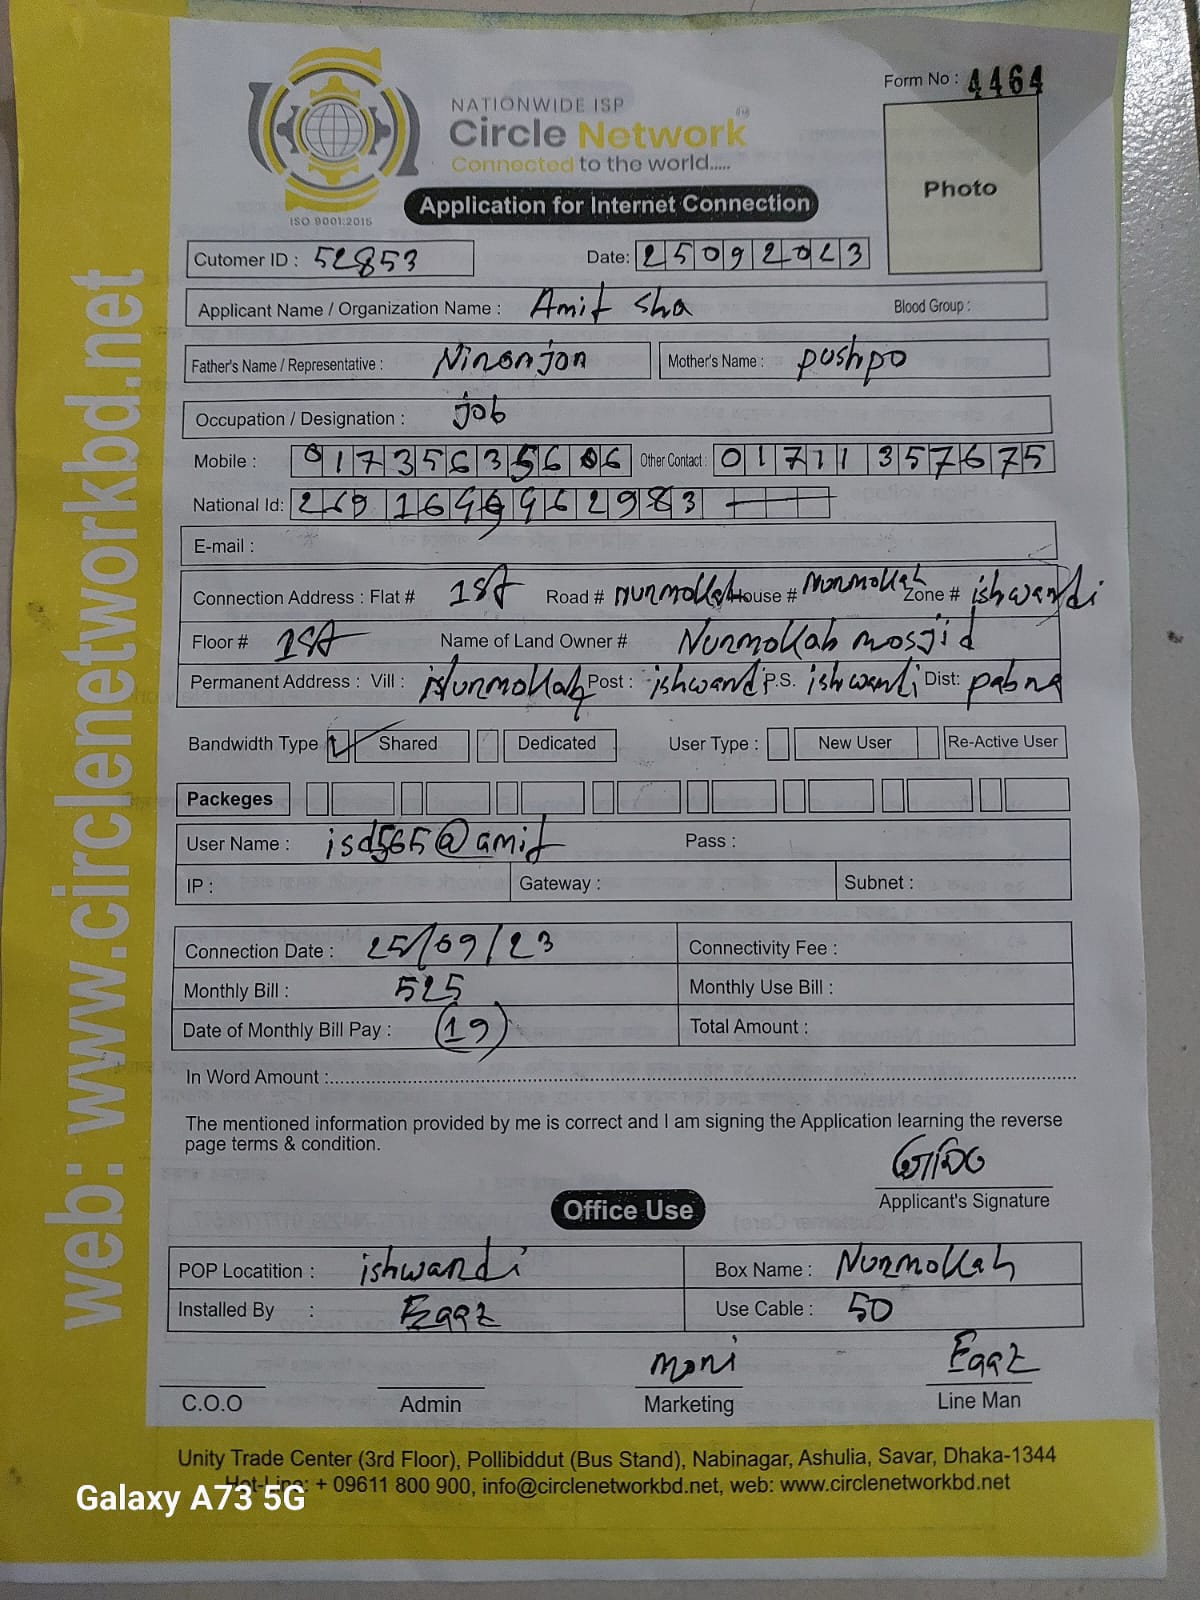 Form No : 4464
NATIONWIDE ISP
Circle Network
Connected to the world.....
ISO 9001:2015
Photo
Application for Internet Connection
Cutomer ID : 52853 Date: 25092023
Applicant Name / Organization Name : Amit Sha Blood Group :
Father's Name / Representative : Niranjon Mother's Name : pushpo
Occupation / Designation : job
Mobile : Other Contact : 01711357675
National Id:
E-mail :
Connection Address : Flat # 1st Road # nurmollah House # Nurmollah Zone # ishwardi
Floor # 1st Name of Land Owner # Nurmollah mosjid
Permanent Address : Vill : Nurmollah Post : ishwardi P.S. ishwardi Dist: pabna
Bandwidth Type Shared Dedicated User Type : New User Re-Active User
Packeges
User Name : isd565@amit Pass :
IP : Gateway : Subnet :
Connection Date : 25/09/23 Connectivity Fee :
Monthly Bill : 525 Monthly Use Bill :
Date of Monthly Bill Pay : (19) Total Amount :
In Word Amount :
The mentioned information provided by me is correct and I am signing the Application learning the reverse
page terms & condition.
Applicant's Signature
Office Use
POP Locatition : ishwardi Box Name : Nurmollah
Installed By : Use Cable : 50
moni
C.O.O Admin Marketing Line Man
Unity Trade Center (3rd Floor), Pollibiddut (Bus Stand), Nabinagar, Ashulia, Savar, Dhaka-1344
Hot-Line: + 09611 800 900, info@circlenetworkbd.net, web: www.circlenetworkbd.net
web: www.circlenetworkbd.net
Galaxy A73 5G